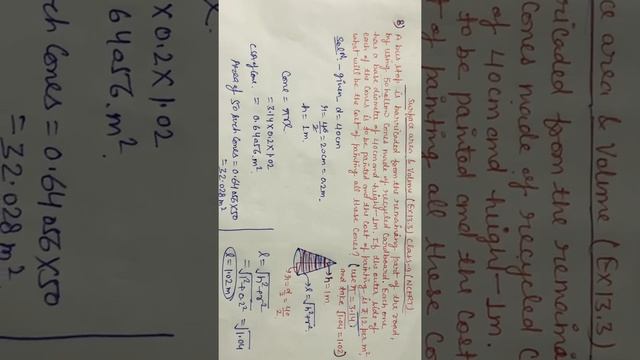 Surface area & Volume (EX13.3) Class-9 (NCERT)
8) A bus stop is barricaded from the remaining part of the road,
by using 50 hollow cones made of recycled cardboard. Each one
has a base diameter of 40cm and height-1m. If the outer side of
each of the cones is to be painted and the cost of painting is ₹12 per m²,
what will be the cost of painting all these cones? (use π=3.14)
and take √1.04=1.02)
Solⁿ:- given d=40cm
r=40/2=20cm=0.2m.
h=1m.
h=1m
l=√h²+r²
r=d/2=40/2
Cone=πrl
=3.14×0.2×1.02
CSA of one = 0.64056.m²
Area of 50 such Cones=0.64056×50
=32.028m²
l=√h²+r²
=√1²+0.2²=√1.04
l=1.02m
ce area & Volume (EX13.3)
ricaded from the remaine
Cones made of recycled C
of 40cm and height-1m.
to be painted and the cost
t of painting all these co
×0.2×1.02
64056.m²
uch Cones=0.64056×50
=32.028m²